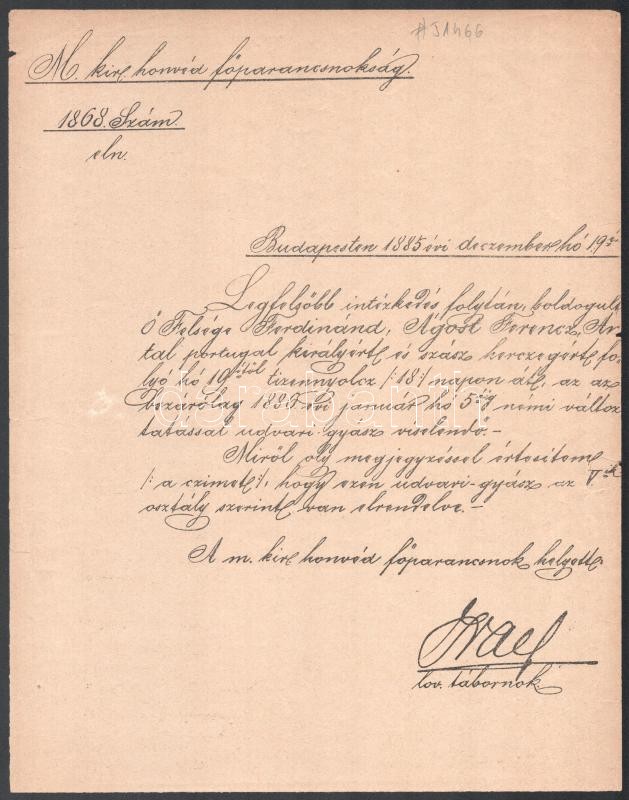 #J1466
M. kir. honvéd főparancsnokság.
1868. Szám.
eln.
Budapesten 1885 évi deczember hó 19.én
Legfelsőbb intézkedés folytán, boldogult
ő Felsége Ferdinánd, Ágost Ferencz, An-
tal portugal királyért és szász herczegért fo-
lyó hó 19.étől tizennyolcz /:18:/ napon át, az az
bezárólag 1886 évi január hó 5éig némi változ
tatással udvari-gyász viselendő.-
Miről oly megjegyzéssel értesitem
/: a czimet :/, hogy ezen udvari-gyász az V.ik
osztály szerint van elrendelve.-
A m. kir. honvéd főparancsnok helyett.
lov. tábornok.
darabanth